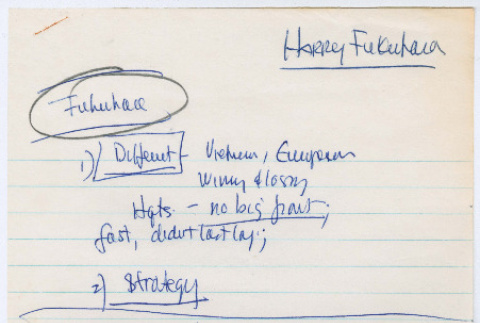 Harry Fukuhara
Fukuhara
1) Different - Vietnam, European
winning & losing
Hqts. - no big front;
fast, didn't last long;
2) Strategy